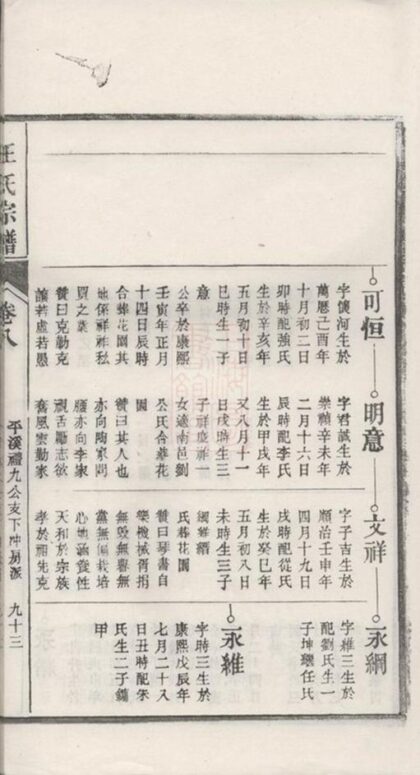 可恒
字懷河生於
萬曆己酉年
十月初二日
卯時配強氏
生於辛亥年
五月初十日
巳時生一子
意
公卒於康熙
壬寅年正月
十四日辰時
合葬花園其
地係祥祚私
買之業
贊曰克勤克
讓若虛若愚
明意
字君誠生於
崇禎辛未年
二月十六日
辰時配李氏
生於甲戌年
又八月十一
日戌時生三
子祥慶祚一
女適南邑劉
公氏合葬花
園
贊曰其人也
亦向陶家問
膳亦向李家
視舌勵志欲
奮風宏勤家
文祥
字子吉生於
順治壬申年
四月十九日
戌時配從氏
生於癸巳年
五月初八日
未時生三子
綱維縉
氏葬花園
贊曰琴書自
樂機械胥捐
無毀無譽無
黨無偏栽培
心地涵養性
天和於宗族
孝於祖先克
永綱
字維三生於
配劉氏生一
子坤瓊任氏
永維
字時三生於
康熙戊辰年
七月二十八
日丑時配朱
氏生二子鏞
甲
汪氏宗譜
卷八
平溪禮九公支下沖易派
九十三